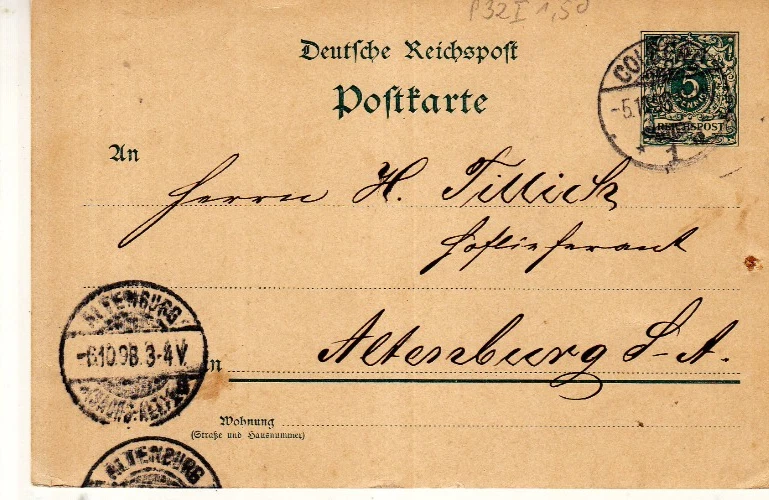 P32I 1,50
Deutsche Reichspost
Postkarte
5
PFENNIG
REICHSPOST
-5.10.98
* 1 d
An
Herrn H. Tillich
Hoflieferant
Altenburg S-A.
in
ALTENBURG
-6.10.98. 3-4 V.
Wohnung
(Straße und Hausnummer)
ALTENBURG